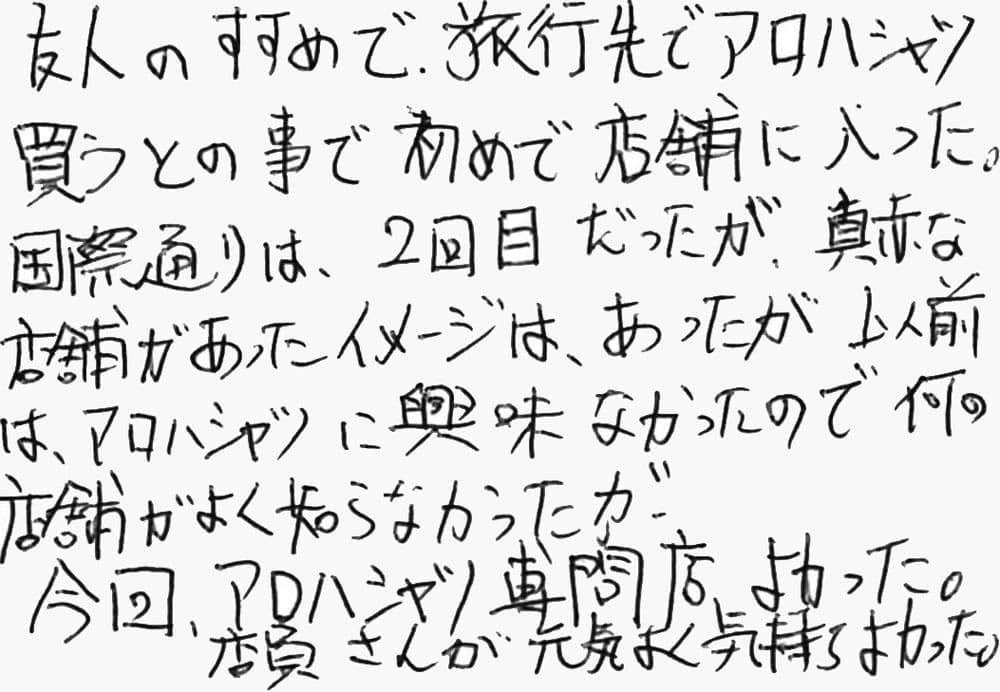 友人のすすめで、旅行先でアロハシャツ
買うとの事で初めて店舗に入った。
国際通りは、2回目だったが、真赤な
店舗があったイメージは、あったが以前
は、アロハシャツに興味なかったので何の
店舗がよく知らなかったが、
今回、アロハシャツ専門店、よかった。
店員さんが元気よく気持ちよかった。